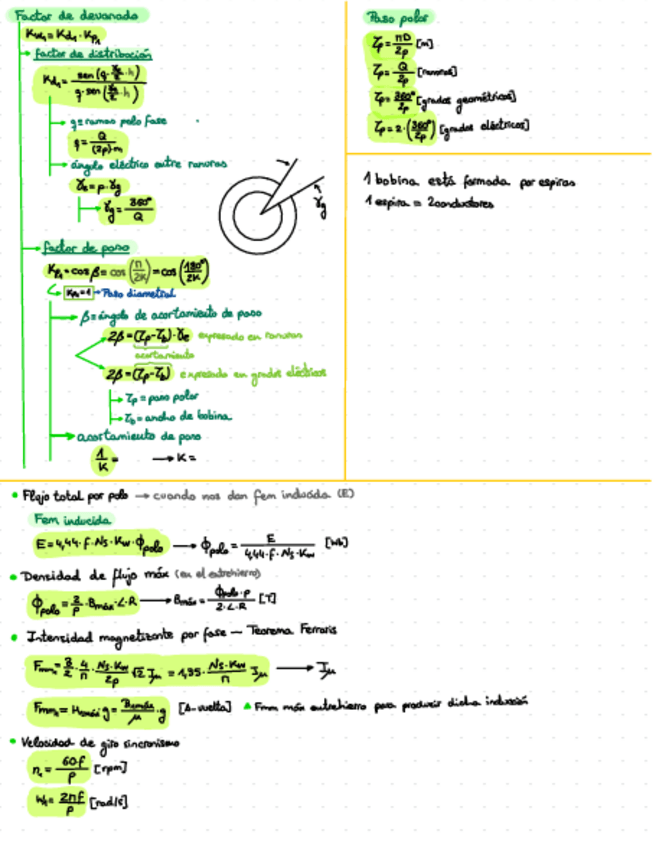 Factor de devanado
Kw₁ = Kd₁ · Kp₁
factor de distribución
Kd₁ = sen(q · γe/2 · h) / q · sen(γe/2 · h)
q = ranuras polo fase
q = Q / (2p)·m
ángulo eléctrico entre ranuras
γe = p · γg
γg = 360° / Q
γg
factor de paso
Kp₁ = cos β = cos(π/2K) = cos(180°/2K)
Kp₁ = 1 → Paso diametral
β = ángulo de acortamiento de paso
2β = (τp - τb) · γe expresado en ranuras
acortamiento
2β = (τp - τb) expresado en grados eléctricos
τp = paso polar
τb = ancho de bobina
acortamiento de paso
1/K = → K =
Paso polar
τp = πD / 2p [m]
τp = Q / 2p [ranuras]
τp = 360° / 2p [grados geométricos]
τp = 2 · (360° / 2p) [grados eléctricos]
1 bobina está formada por espiras
1 espira = 2 conductores
• Flujo total por polo → cuando nos dan fem inducida (E)
Fem inducida
E = 4,44 · f · Ns · Kw · ϕpolo → ϕpolo = E / 4,44 · f · Ns · Kw [Wb]
• Densidad de flujo máx (en el entrehierro)
ϕpolo = 2/p · Bmáx · L · R → Bmáx = ϕpolo · p / 2 · L · R [T]
• Intensidad magnetizante por fase — Teorema Ferraris
Fmm = 3/2 · 4/π · Ns · Kw / 2p √2 Iμ = 1,35 · Ns · Kw / π Iμ → Iμ
Fmm = Hmáx g = Bmáx / μ · g [A-vuelta] ▲ Fmm máx entrehierro para producir dicha inducción
• Velocidad de giro sincronismo
n₁ = 60f / p [rpm]
W₁ = 2πf / p [rad/s]